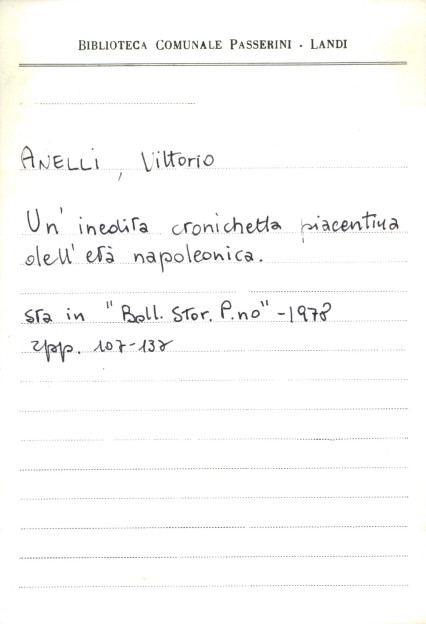 BIBLIOTECA COMUNALE PASSERINI - LANDI
ANELLI, Vittorio
Un' inedita cronichetta piacentina
dell' età napoleonica.
sta in "Boll. Stor. P.no" - 1978
pp. 107-137